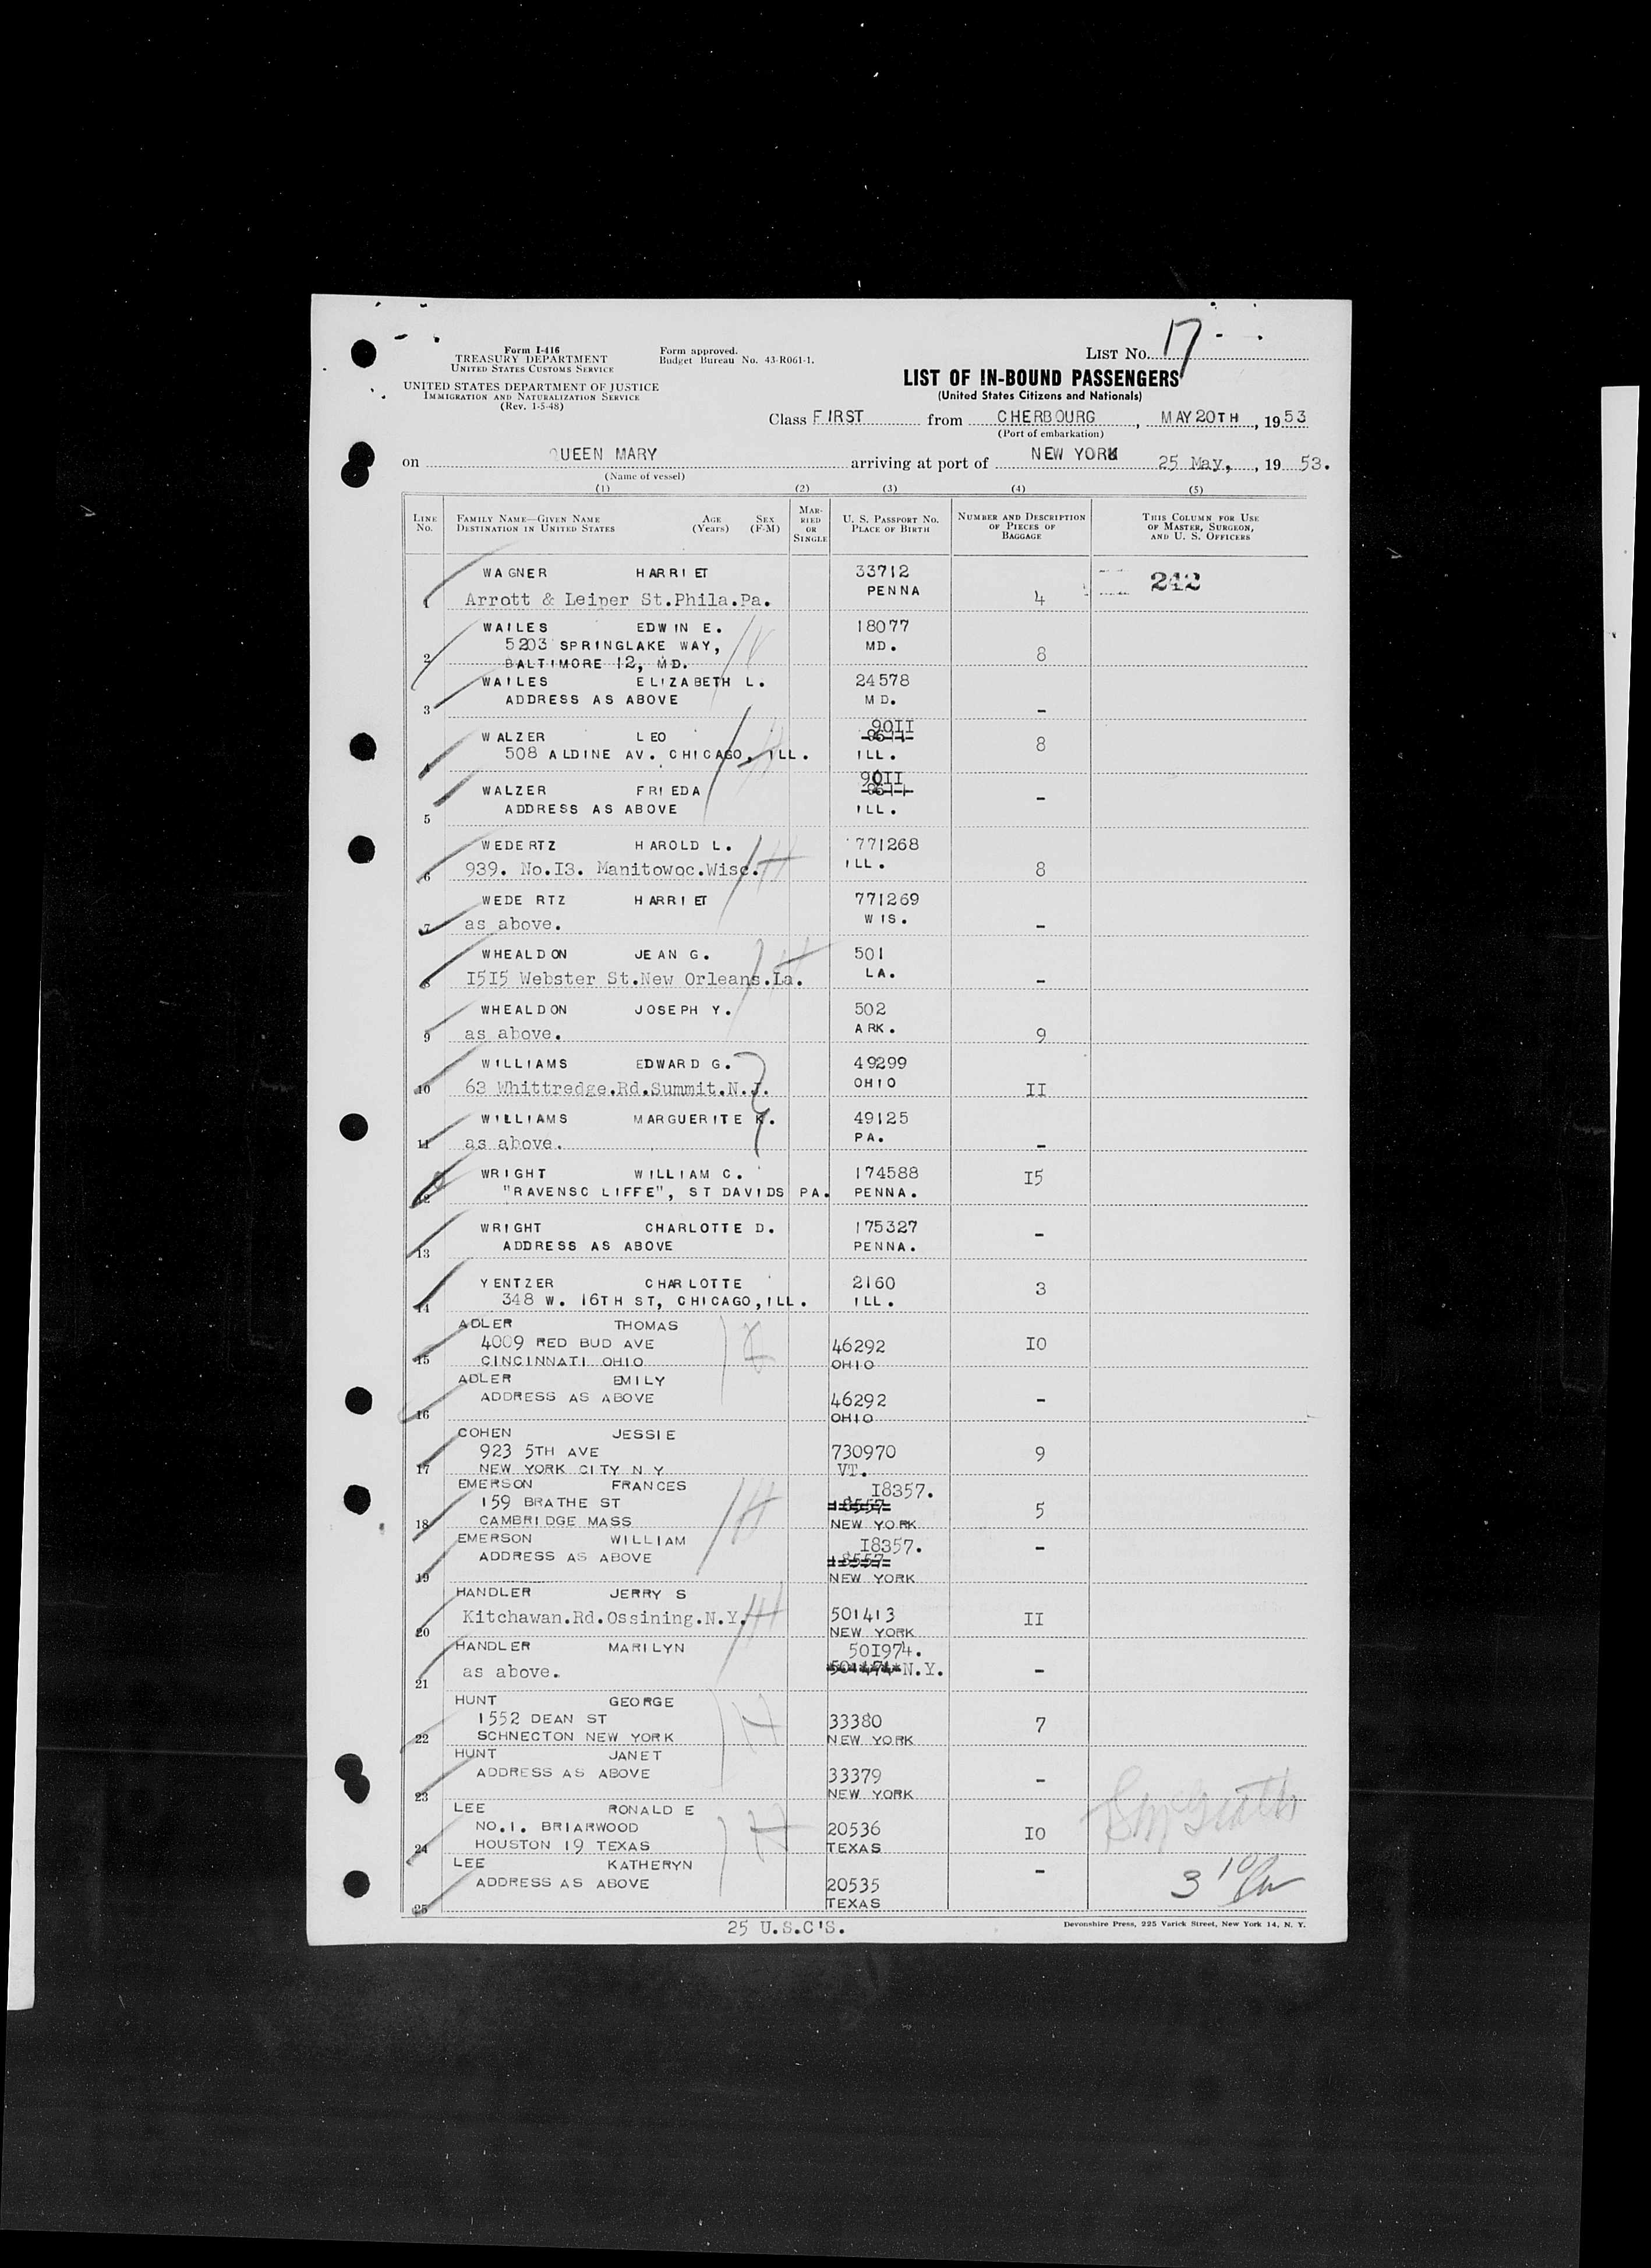 Form I-416
TREASURY DEPARTMENT
UNITED STATES CUSTOMS SERVICE
UNITED STATES DEPARTMENT OF JUSTICE
IMMIGRATION AND NATURALIZATION SERVICE
(Rev. 1-5-48)
Form approved.
Budget Bureau No. 43-R061-1.
LIST NO. 17
LIST OF IN-BOUND PASSENGERS
(United States Citizens and Nationals)
Class FIRST from CHERBOURG, MAY 20TH, 1953
(Port of embarkation)
on QUEEN MARY arriving at port of NEW YORK 25 May, 1953.
(Name of vessel)
(1) (2) (3) (4) (5)
LINE NO. FAMILY NAME—GIVEN NAME DESTINATION IN UNITED STATES AGE (Years) SEX (F-M) MARRIED OR SINGLE U. S. PASSPORT NO. PLACE OF BIRTH NUMBER AND DESCRIPTION OF PIECES OF BAGGAGE THIS COLUMN FOR USE OF MASTER, SURGEON, AND U. S. OFFICERS
WAGNER HARRIET 33712 242
PENNA
1 Arrott & Leiper St.Phila.Pa. 4
WAILES EDWIN E. 18077
5203 SPRINGLAKE WAY, MD.
2 BALTIMORE 12, MD. 8
WAILES ELIZABETH L. 24578
3 ADDRESS AS ABOVE MD. -
9OII
WALZER LEO 8
4 508 ALDINE AV. CHICAGO, ILL. ILL.
9OII
WALZER FRIEDA -
5 ADDRESS AS ABOVE ILL.
WEDERTZ HAROLD L. 771268
6 939. No.I3. Manitowoc.Wisc. ILL. 8
WEDERTZ HARRIET 771269
7 as above. WIS. -
WHEALDON JEAN G. 501
8 I5I5 Webster St.New Orleans.La. LA. -
WHEALDON JOSEPH Y. 502
9 as above. ARK. 9
WILLIAMS EDWARD G. 49299
10 63 Whittredge.Rd.Summit.N.J. OHIO II
WILLIAMS MARGUERITE K. 49125
11 as above. PA. -
WRIGHT WILLIAM C. 174588 I5
12 "RAVENSCLIFFE", ST DAVIDS PA. PENNA.
WRIGHT CHARLOTTE D. 175327 -
13 ADDRESS AS ABOVE PENNA.
YENTZER CHARLOTTE 2160 3
14 348 W. 16TH ST, CHICAGO, ILL. ILL.
ADLER THOMAS
4009 RED BUD AVE 46292 IO
15 CINCINNATI OHIO OHIO
ADLER EMILY
ADDRESS AS ABOVE 46292 -
16 OHIO
COHEN JESSIE
923 5TH AVE 730970 9
17 NEW YORK CITY N Y VT.
EMERSON FRANCES I8357.
159 BRATHE ST 18557 5
18 CAMBRIDGE MASS NEW YORK
EMERSON WILLIAM I8357. -
ADDRESS AS ABOVE 18557
19 NEW YORK
HANDLER JERRY S
Kitchawan.Rd.Ossining.N.Y. 501413 II
20 NEW YORK
HANDLER MARILYN 50I974.
as above. N.Y. -
21
HUNT GEORGE
1552 DEAN ST 33380 7
22 SCHNECTON NEW YORK NEW YORK
HUNT JANET
ADDRESS AS ABOVE 33379 -
23 NEW YORK
LEE RONALD E
NO.1. BRIARWOOD 20536 IO
24 HOUSTON 19 TEXAS TEXAS
LEE KATHERYN -
ADDRESS AS ABOVE 20535
25 TEXAS
25 U.S.C'S.
Devonshire Press, 225 Varick Street, New York 14, N. Y.